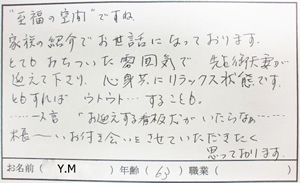 "至福の空間"ですね
家族の紹介でお世話になっております。
とてもおちついた雰囲気で 先生御夫妻が
迎えて下さり、心身共にリラックス状態です。
ともすれば ウトウト…することも。
……一言 "お迎えする看板犬がいたらなぁ……
末長〜いお付き合いとさせていただきたく
思っております。
お名前( Y.M )年齢( 63 )職業( )